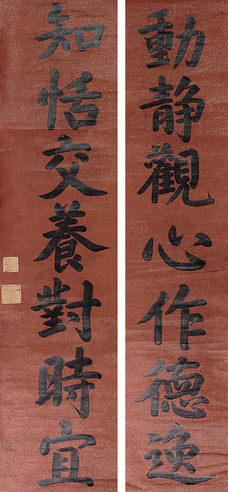 動静觀心作德逸
知恬交養對時宜